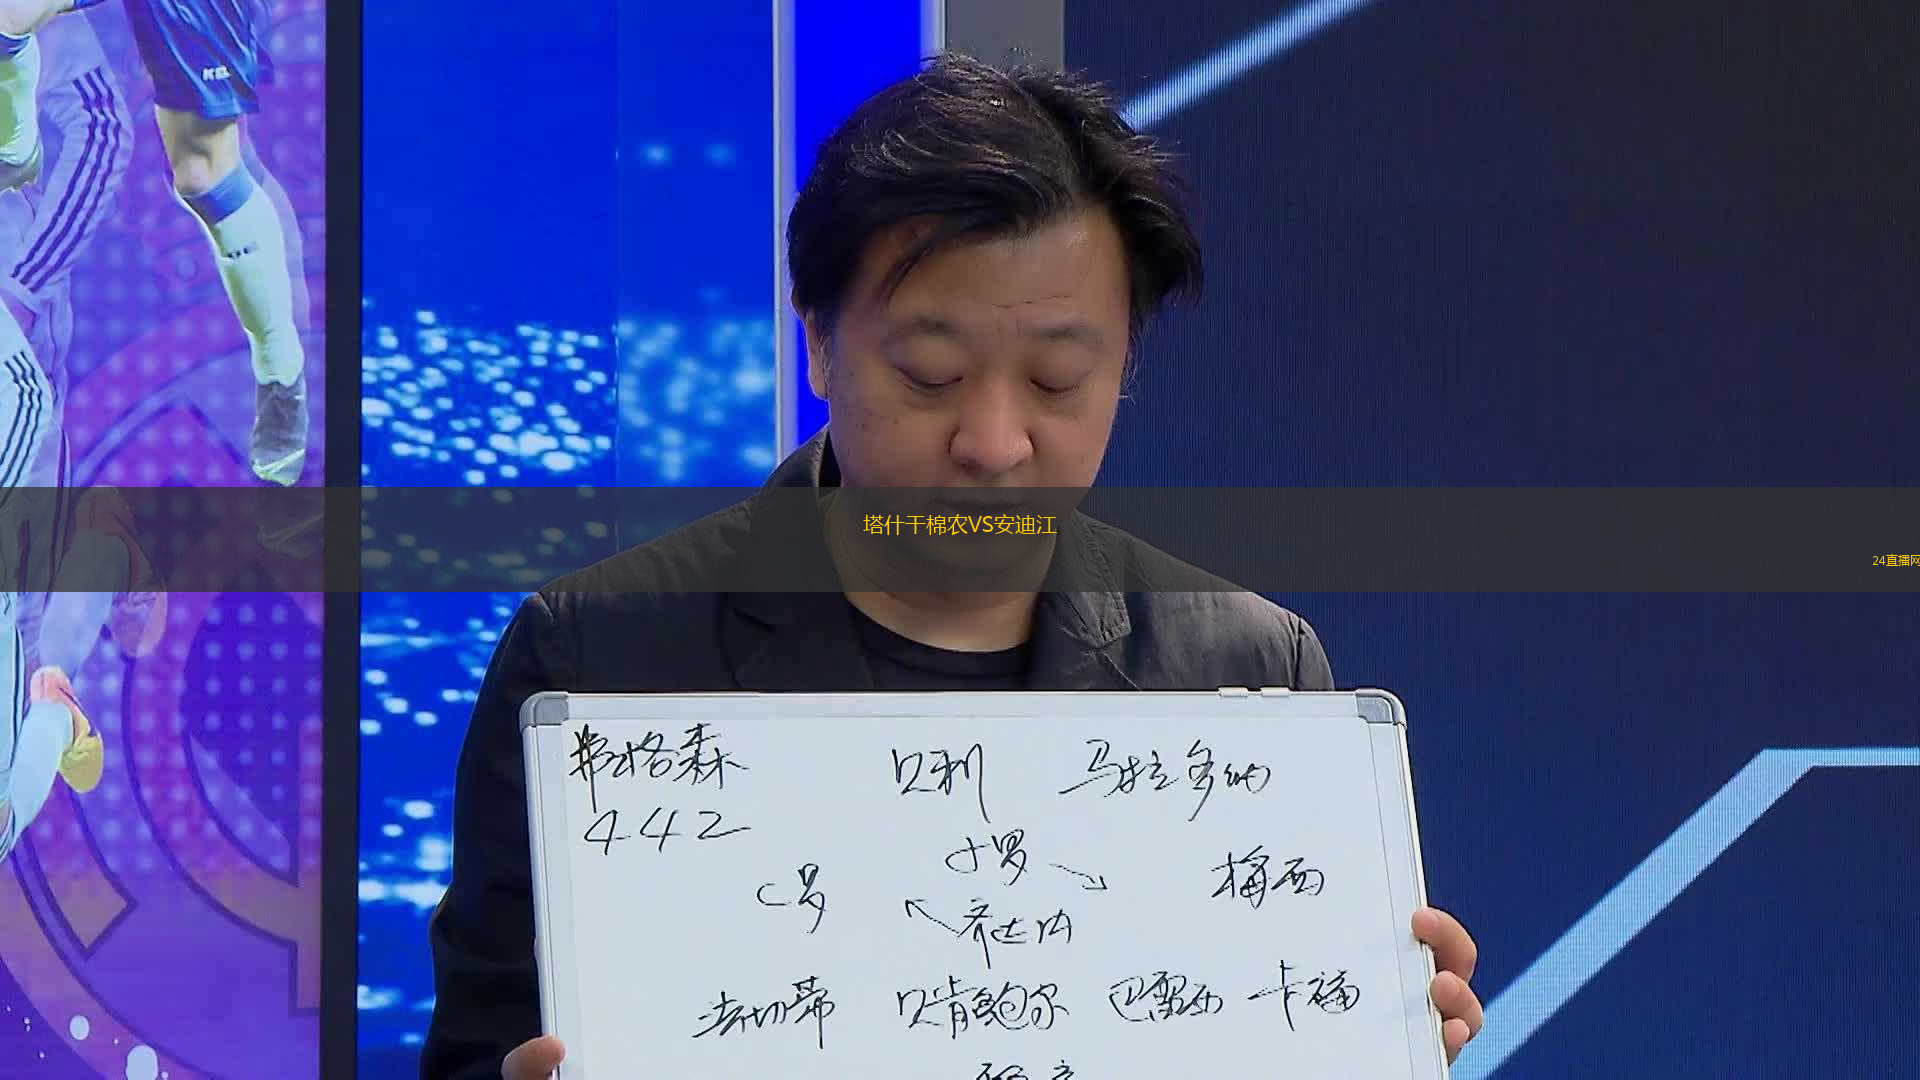 塔什干棉农VS安迪江
24直播网
弗格森 贝利 马拉多纳
442
小罗
C罗 梅西
齐达内
法切蒂 贝肯鲍尔 巴雷西 卡福